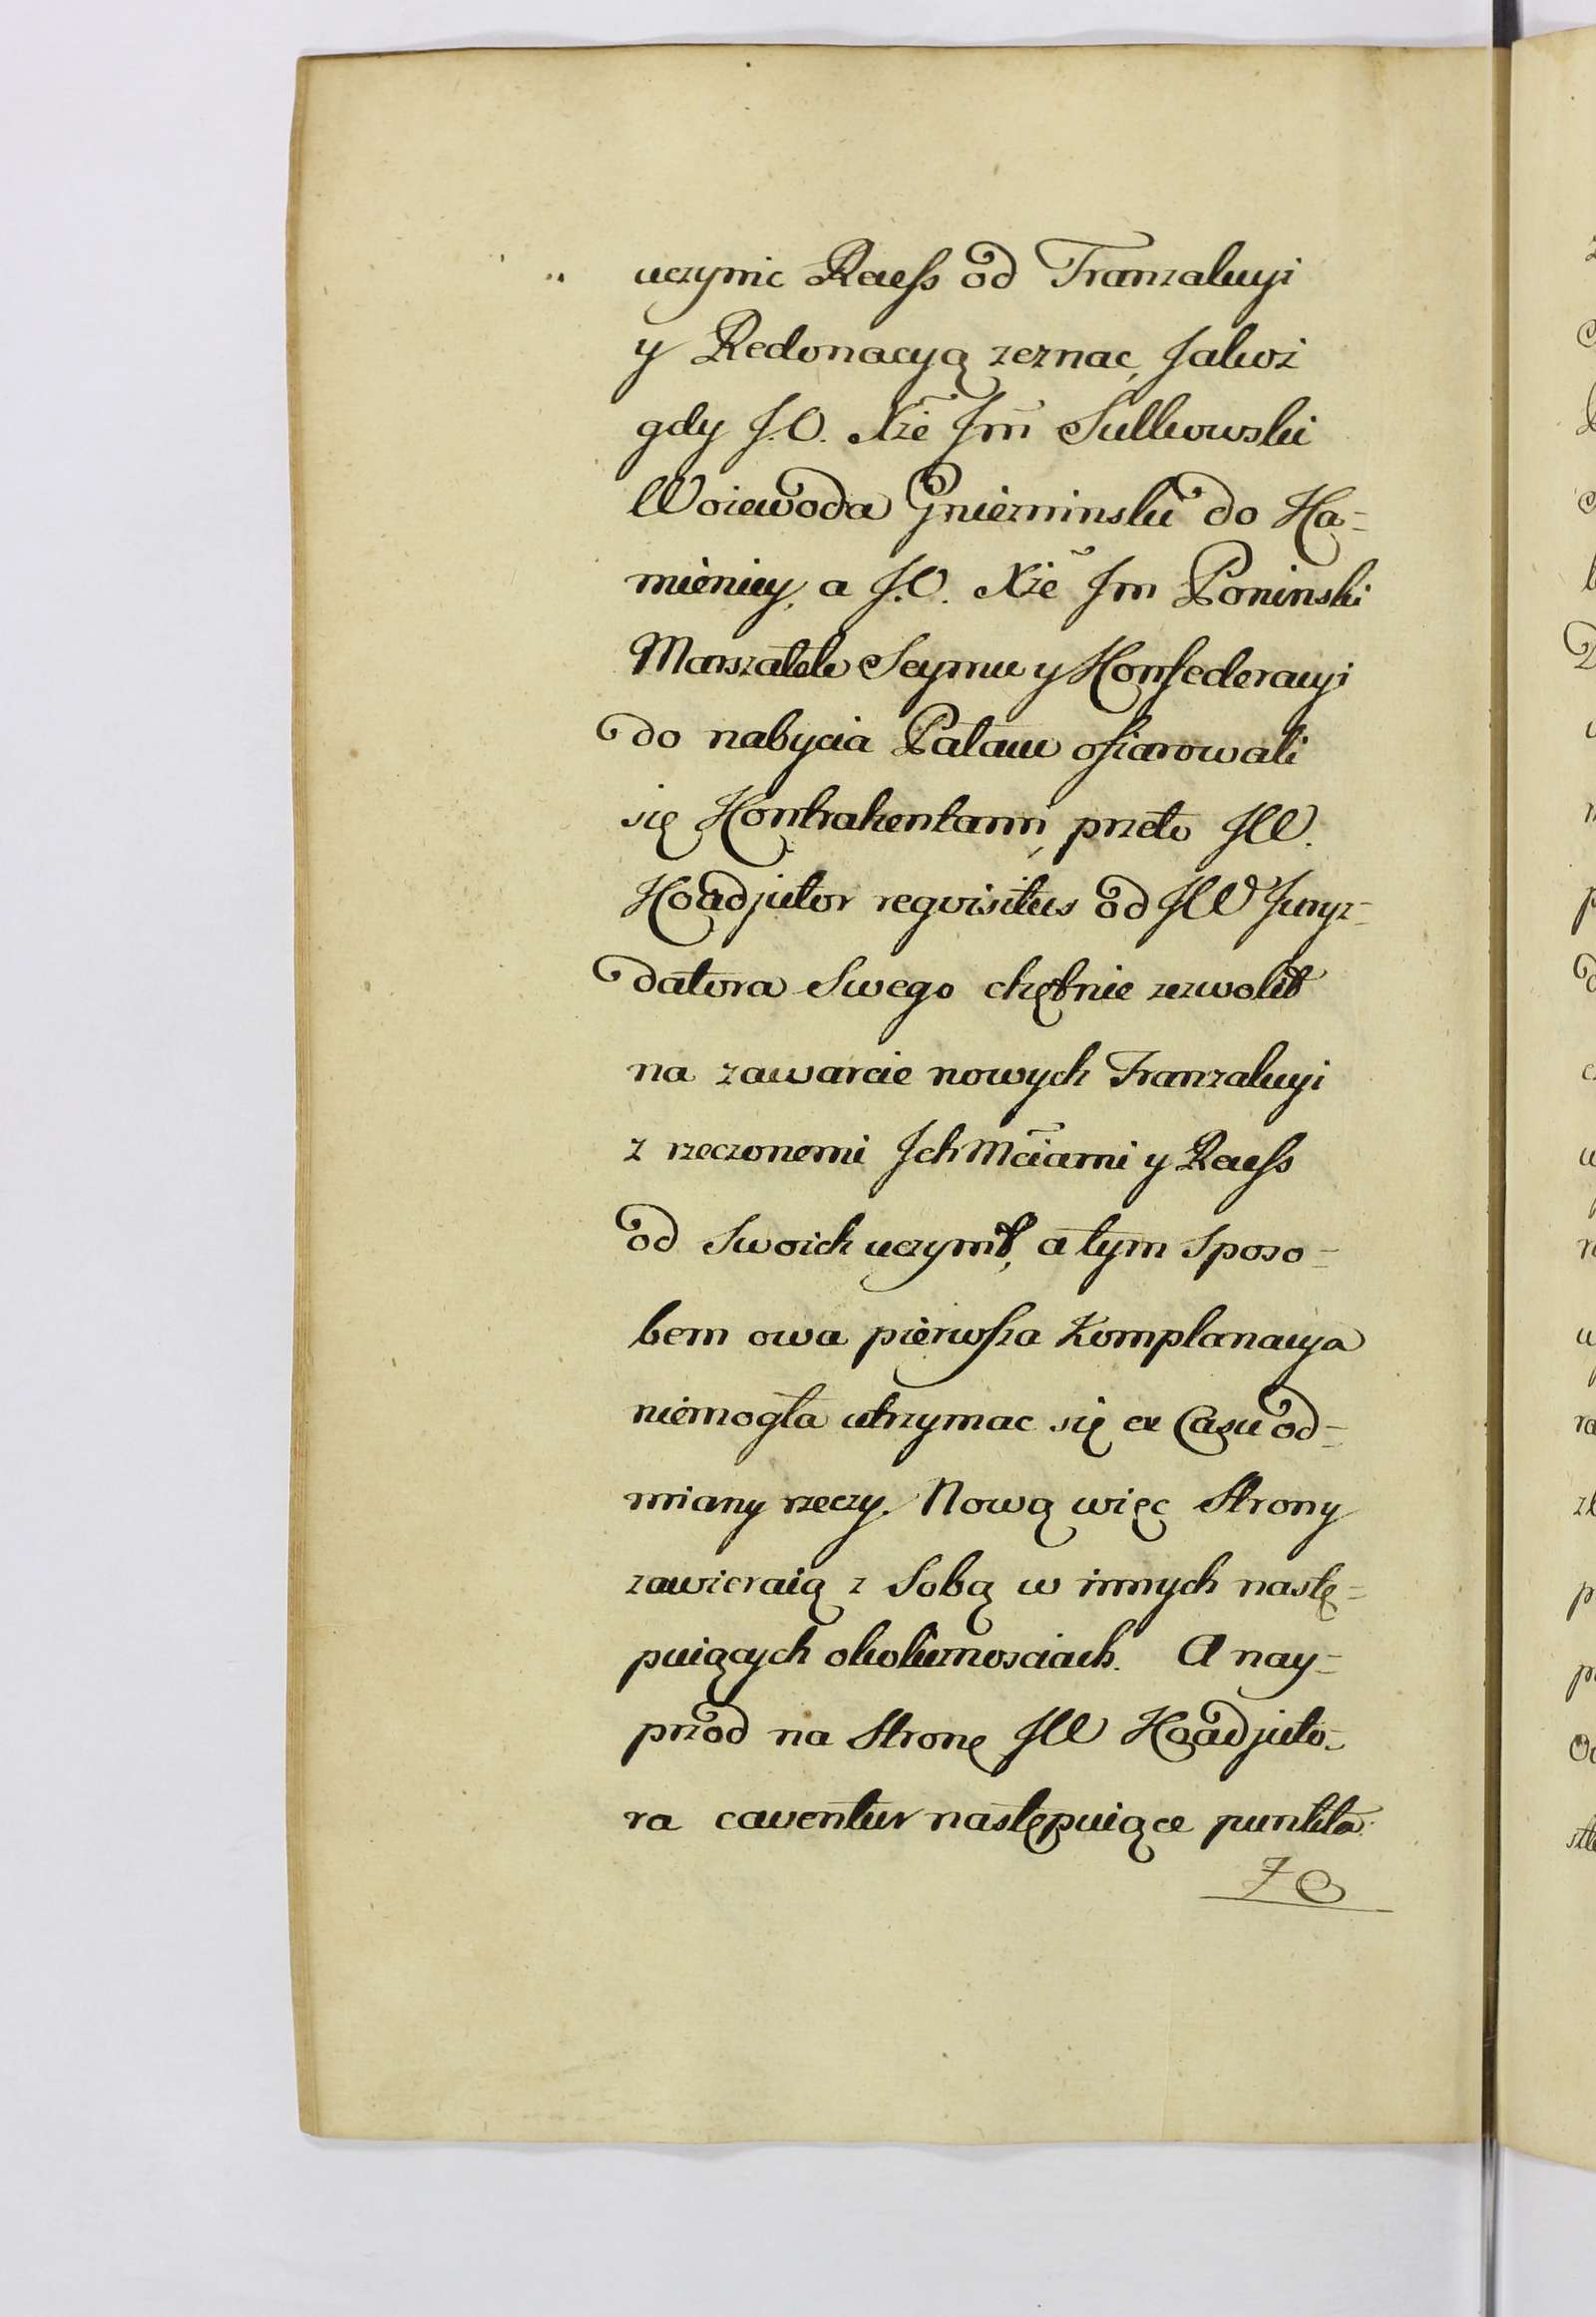 uczynic Recess od Tranzakcyi
y Redonacyą zeznac, Jakoż
gdy J.O. Xże Jm Sułkowski
Woiewoda Gniezninski do Ka=
mienicy, a J.O. Xże Jm Poninski
Marszałek Seymu y Konfederacyi
do nabycia Pałacu ofiarowali
się Kontrahentami, przeto JW.
Koadjutor reqvisitus od JW Juryz=
datora Swego chętnie zezwolił
na zawarcie nowych Tranzakcyi
z rzeczonemi Jch Mciami y Recess
od Swoich uczynił, a tym Sposo=
bem owa pierwsza Komplanacya
niemogła utrzymac się ex Casu od=
miany rzeczy. Nową więc Strony
zawieraią z Sobą w innych nastę=
puiących okolicznosciach. A nay=
przod na Stronę JW Koadjuto=
ra caventur następuiące punkta: